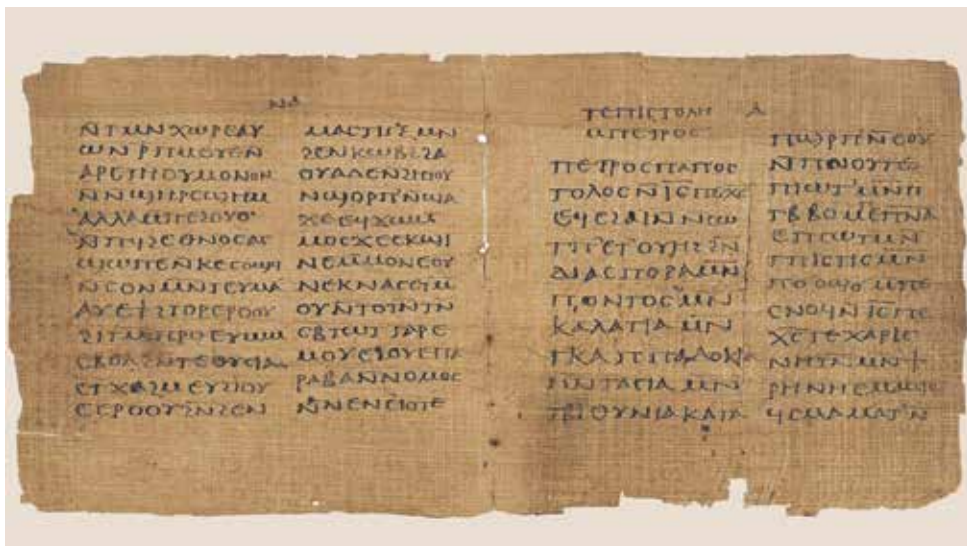 ⲛ̄ⲇ
ⲛ̄ⲧⲙⲛⲭⲱⲣⲉⲁⲩ
ⲱⲛⲣⲡⲙⲉⲩⲉⲛ
ⲁⲣⲉⲧⲏⲟⲩⲙⲟⲛⲟⲛ
ⲛⲛϣⲏⲣⲉϣⲏⲙ
ⲁⲗⲗⲁⲙⲡⲉϩⲟⲩⲟ
ⲙ̄ⲡϥϩⲉⲑⲛⲟⲥⲁⲥ
ϣⲱⲡⲉⲛ̄ⲕⲉⲥⲟⲡ
ⲛⲥⲟⲛⲙⲛⲧⲉⲩⲙⲁ
ⲁⲩⲉϯϩⲧⲟⲣⲉⲣⲟⲟⲩ
ϩⲓⲧⲙⲡⲣⲣⲟⲉⲩⲱⲙ
ⲉⲃⲟⲗϩⲛⲧⲉⲑⲩⲥⲓⲁ
ⲉⲧϫⲁϩⲙⲉⲩϩⲓⲟⲩ
ⲉⲣⲟⲟⲩϩⲛϩⲉⲛ
ⲙⲁⲥⲧⲓⲝⲙⲛ
ϩⲉⲛⲕⲱⲃⲉϩⲁ
ⲟⲩⲁⲗⲉⲛϩⲏⲧⲟⲩ
ⲛϣⲟⲣⲡⲛ̄ϣⲁ
ϫⲉⲉϥϫⲱⲙ
ⲙⲟⲥϫⲉⲉⲕϣⲓ
ⲛⲉⲙ̄ⲙⲟⲛⲉⲟⲩ
ⲛⲉⲕⲛⲁⲉⲓⲙ
ⲟⲩⲛⲧⲟⲧⲛⲧⲛ
ⲥⲃⲧⲱⲧⲅⲁⲣⲉ
ⲙⲟⲩⲉϩⲟⲩⲉⲡⲁ
ⲣⲁⲃⲁⲛⲛⲟⲙⲟⲥ
ⲛ̄ⲛⲉⲛⲉⲓⲟⲧⲉ
ⲧⲉⲡⲓⲥⲧⲟⲗⲏ ⲁ
ⲙⲡⲉⲧⲣⲟⲥ
ⲡⲉⲧⲣⲟⲥⲡⲁⲡⲟⲥ
ⲧⲟⲗⲟⲥⲛ̄ⲓ̄ⲥ̄ⲡⲉⲭⲥ
ⲉϥⲥϩⲁⲓⲛⲛⲥⲱ
ⲧⲡⲉⲧⲟⲩⲏϩϩⲛ
ⲇⲓⲁⲥⲡⲟⲣⲁⲙⲛ
ⲡⲟⲛⲧⲟⲥⲙⲛ
ⲕⲁⲗⲁⲧⲓⲁⲙⲛ
ⲧⲕⲁⲡⲡⲁⲇⲟⲕⲓⲁ
ⲙⲛⲧⲁⲥⲓⲁⲙⲛ
ⲧⲃⲓⲑⲩⲛⲓⲁⲕⲁⲧⲁ
ⲡϣⲣⲡⲛ̄ⲥⲟⲩ
ⲛ̄ⲡⲛⲟⲩⲧⲉ
ⲡⲓⲱⲧⲙⲛⲡ
ⲧⲃⲃⲟⲙⲡⲉⲡⲛⲁ
ⲉⲡⲥⲱⲧⲙⲛ̄
ⲧⲡⲓⲥⲧⲓⲥⲙⲛ
ⲡⲟⲩⲱϣⲙⲡⲉ
ⲥⲛⲟϥⲛ̄ⲓ̄ⲥ̄ⲡⲉ
ⲭⲥⲧⲉⲭⲁⲣⲓⲥ
ⲛⲏⲧⲛⲙⲛϯ
ⲣⲏⲛⲏⲉⲙⲙⲟ
ϥⲥⲙⲁⲙⲁⲧⲛ̄